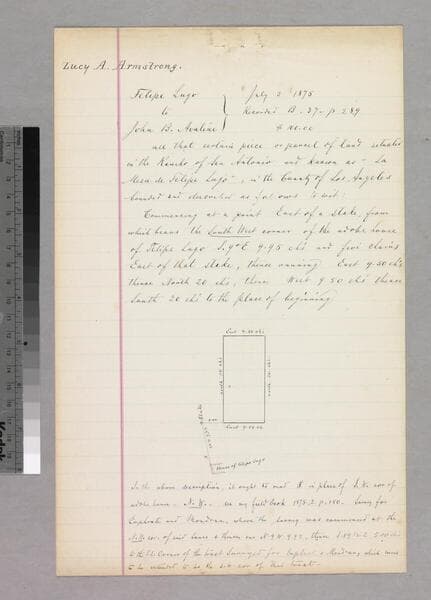 Lucy A. Armstrong.
Felipe Lugo
to
John B.
July 2 1875
Recorded B. 37 - p 289
all that certain piece or parcel of land situated
in the Rancho of San Antonio and known as "La
Mesa de Felipe Lugo", in the County of Los Angeles
bounded and described as follows to wit:
Commencing at a point East of a stake, from
which bears the South West corner of the adobe house
of Felipe Lugo S. 9° E 9.95 chs and five chains
East of that stake, thence running East 9.50 chs
thence North 20 chs, thence West 9.50 chs thence
South 20 chs to the place of beginning
East 9.50 chs
North 20 chs
South 20 chs
East 9.50 ch
Stake
House of Felipe Lugo
In the above description, it ought to read in place of S.W. cor of
adobe house - N.W. - see my field book 1875.2 p. 150. Survey for
and where the survey was commenced at the
N.W. cor. of said house & thence
to the Corner of the tract surveyed for & which
to be intended to be the S.W. cor of this tract.
Kodak